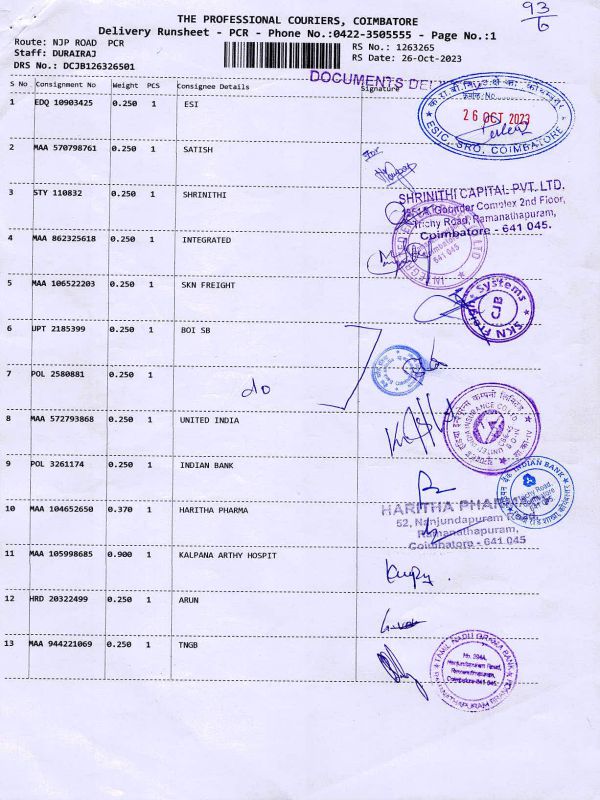 93
6
THE PROFESSIONAL COURIERS, COIMBATORE
Delivery Runsheet - PCR - Phone No.:0422-3505555 - Page No.:1
Route: NJP ROAD PCR
RS No.: 1263265
Staff: DURAIRAJ
RS Date: 26-Oct-2023
DRS No.: DCJB126326501
DOCUMENTS
S No Consignment No Weight PCS Consignee Details Signature
1 EDQ 10903425 0.250 1 ESI
26 OCT 2023
ESIC, SRO, COIMBATORE
2 MAA 570798761 0.250 1 SATISH
3 STY 110832 0.250 1 SHRINITHI
SHRINITHI CAPITAL PVT. LTD.
Complex 2nd Floor,
Trichy Road, Ramanathapuram,
Coimbatore - 641 045.
4 MAA 862325618 0.250 1 INTEGRATED
Coimbatore
641 045
5 MAA 106522203 0.250 1 SKN FREIGHT
Systems
CJB
SKN Freight
6 UPT 2185399 0.250 1 BOI SB
7 POL 2580881 0.250 1
do
8 MAA 572793868 0.250 1 UNITED INDIA
9 POL 3261174 0.250 1 INDIAN BANK
INDIAN BANK
10 MAA 104652650 0.370 1 HARITHA PHARMA
HARITHA PHARMACY
52, Nanjundapuram Road,
Ramanathapuram,
Coimbatore - 641 045
11 MAA 105998685 0.900 1 KALPANA ARTHY HOSPIT
12 HRD 20322499 0.250 1 ARUN
13 MAA 944221069 0.250 1 TNGB
TAMIL NADU GRAMA BANK
No. 204A,
Nanjundapuram Road,
Ramanathapuram,
Coimbatore-641 045